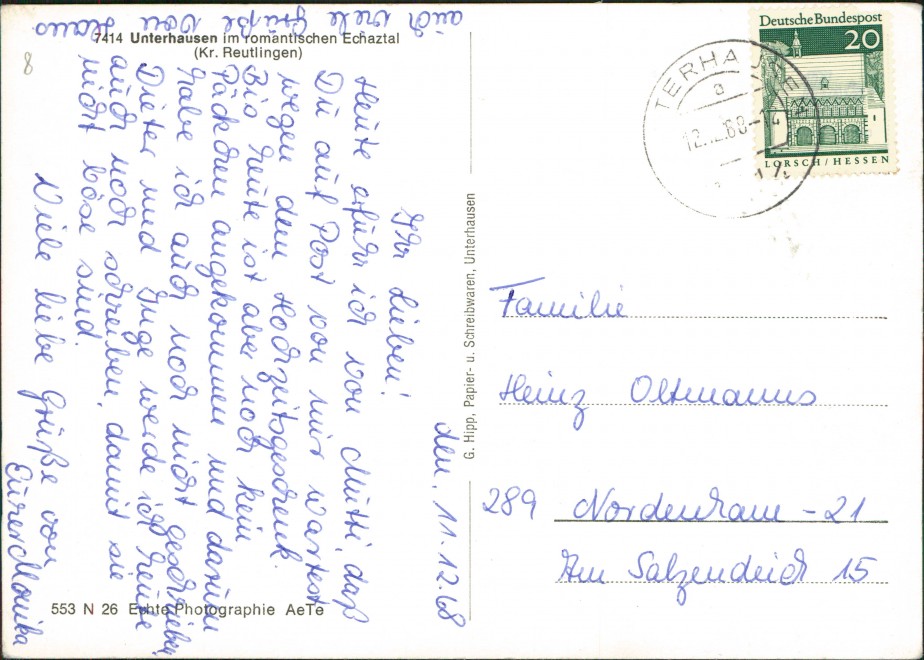 7414 Unterhausen im romantischen Echaztal
(Kr. Reutlingen)
den, 11.12.68
Ihr Lieben!
Heute erfuhr ich von Mutti, daß
Du auf Post von mir wartest
wegen dem Hochzeitsgeschenk.
Bis heute ist aber noch kein
Päckchen angekommen und darum
habe ich auch noch nicht geschrieben.
Dieter und Inge werde ich heute
auch noch schreiben, damit sie
nicht böse sind.
Viele liebe Grüße von
Eurer Monika
auch viele Grüße von Hans
553 N 26 Echte Photographie AeTe
G. Hipp, Papier- u. Schreibwaren, Unterhausen
Deutsche Bundespost
20
LORSCH/HESSEN
TERHAUSEN
a
12. .68-14
Familie
Heinz Oltmanns
289 Nordenham-21
Am Salzendeich 15
8